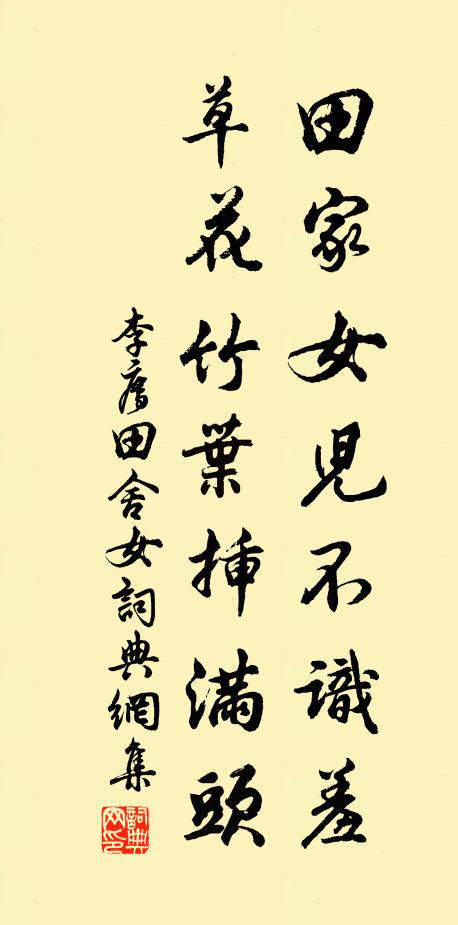 田家女兒不識羞
草花竹葉插滿頭
李膺田舍女詞典網集
詞典網印